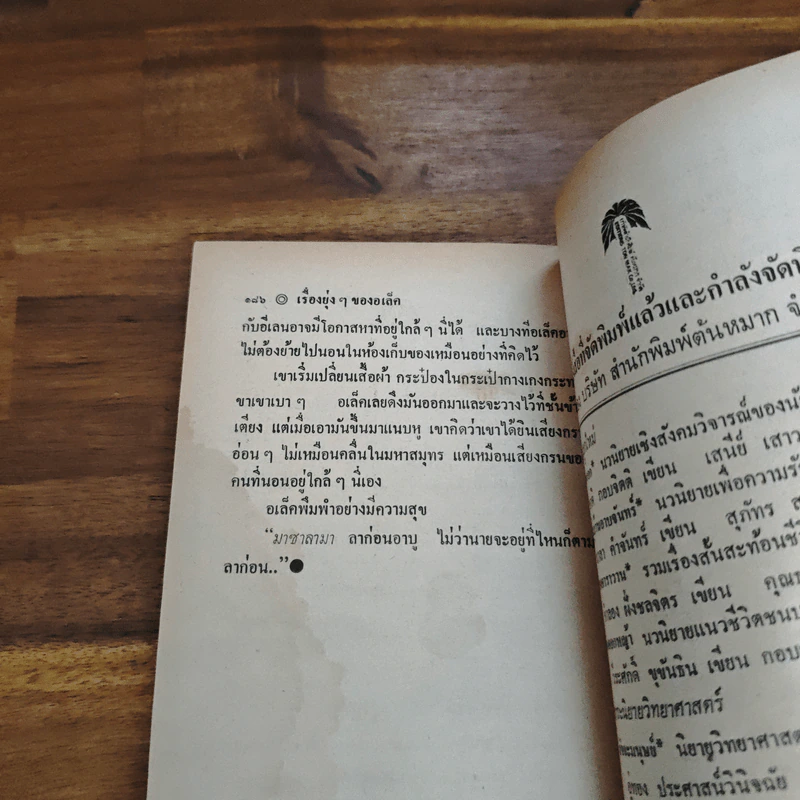 ๑๘๖ ◎ เรื่องยุ่ง ๆ ของอเล็ค
กับอีเลนอาจมีโอกาสหาที่อยู่ใกล้ ๆ นี้ได้ และบางทีอเล็คอาจ
ไม่ต้องย้ายไปนอนในห้องเก็บของเหมือนอย่างที่คิดไว้
เขาเริ่มเปลี่ยนเสื้อผ้า กระป๋องในกระเป๋ากางเกงกระทบ
ขาเขาเบา ๆ อเล็คเลยดึงมันออกมาและจะวางไว้ที่ชั้นข้าง
เตียง แต่เมื่อเอามันขึ้นมาแนบหู เขาคิดว่าเขาได้ยินเสียงกรน
อ่อน ๆ ไม่เหมือนคลื่นในมหาสมุทร แต่เหมือนเสียงกรนของ
คนที่นอนอยู่ใกล้ ๆ นี่เอง
อเล็คพึมพำอย่างมีความสุข
“มาซาลามา ลาก่อนอาบู ไม่ว่านายจะอยู่ที่ไหนก็ตาม
ลาก่อน..”●
ที่จัดพิมพ์แล้วและกำลังจัดพิ
บริษัท สำนักพิมพ์ต้นหมาก จำ
นวนิยายเชิงสังคมวิจารณ์ของนั
กอบจิตติ เขียน เสนีย์ เสาว
นวนิยายเพื่อความรั
คำจันทร์ เขียน สุภัทร ส
รวมเรื่องสั้นสะท้อนชีวิ
ฝั่งชลจิตร เขียน คุณ
นวนิยายแนวชีวิตชนบ
ขุขันธิน เขียน กอบ
นิยายวิทยาศาสตร์
มนุษย์* นิยายวิทยาศาสต
ประศาสน์วินิจฉัย